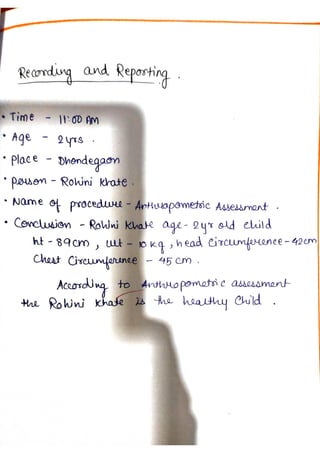 Recording and Reporting.
• Time - 11:00 AM
• Age - 2yrs.
• Place - Dhondegaon
• person - Rohini Khate.
• Name of procedure - Anthropometric Assessment.
• Conclusion - Rohini Khate age - 2yr old child
ht - 89cm, wt - 10 Kg, head circumference - 42cm
Chest Circumference - 45 cm.
According to Anthropometric assessment
the Rohini Khate is the healthy Child.